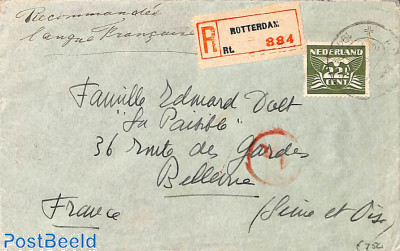 Recommandée
langue Française
ROTTERDAM
R
RL 884
NEDERLAND
22½
CENT
Famille Edmard Dolt
"La Paisible"
36 route des Gardes
Bellevue
France (Seine et Oise)
PostBeeld